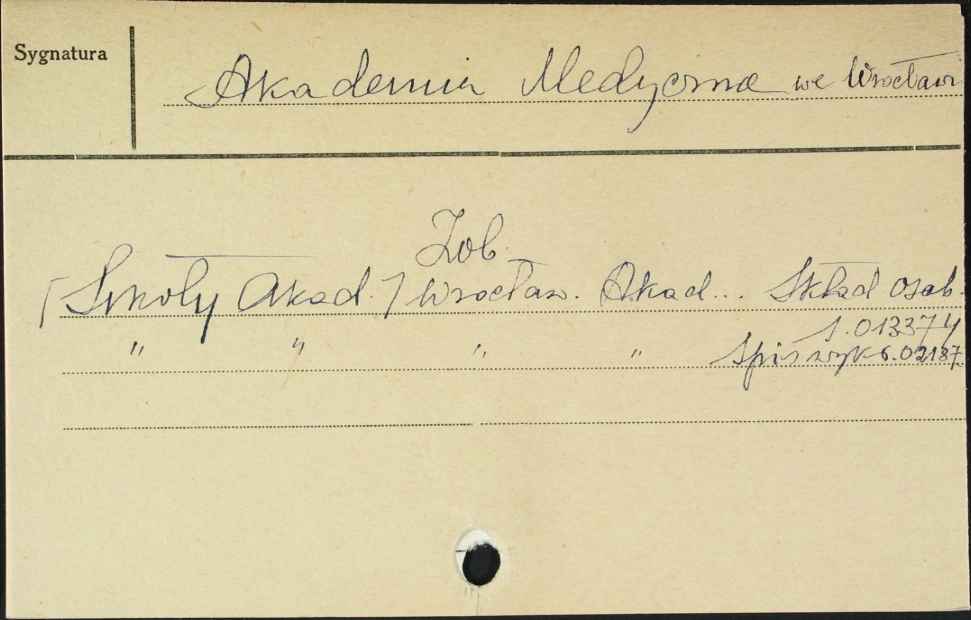 Sygnatura
Akademia Medyczna we Wrocławi
Zob.
[Szkoły Akad.] Wrocław. Akad... Skład osob.
S.013374
" " " " Spis wykł. 02187